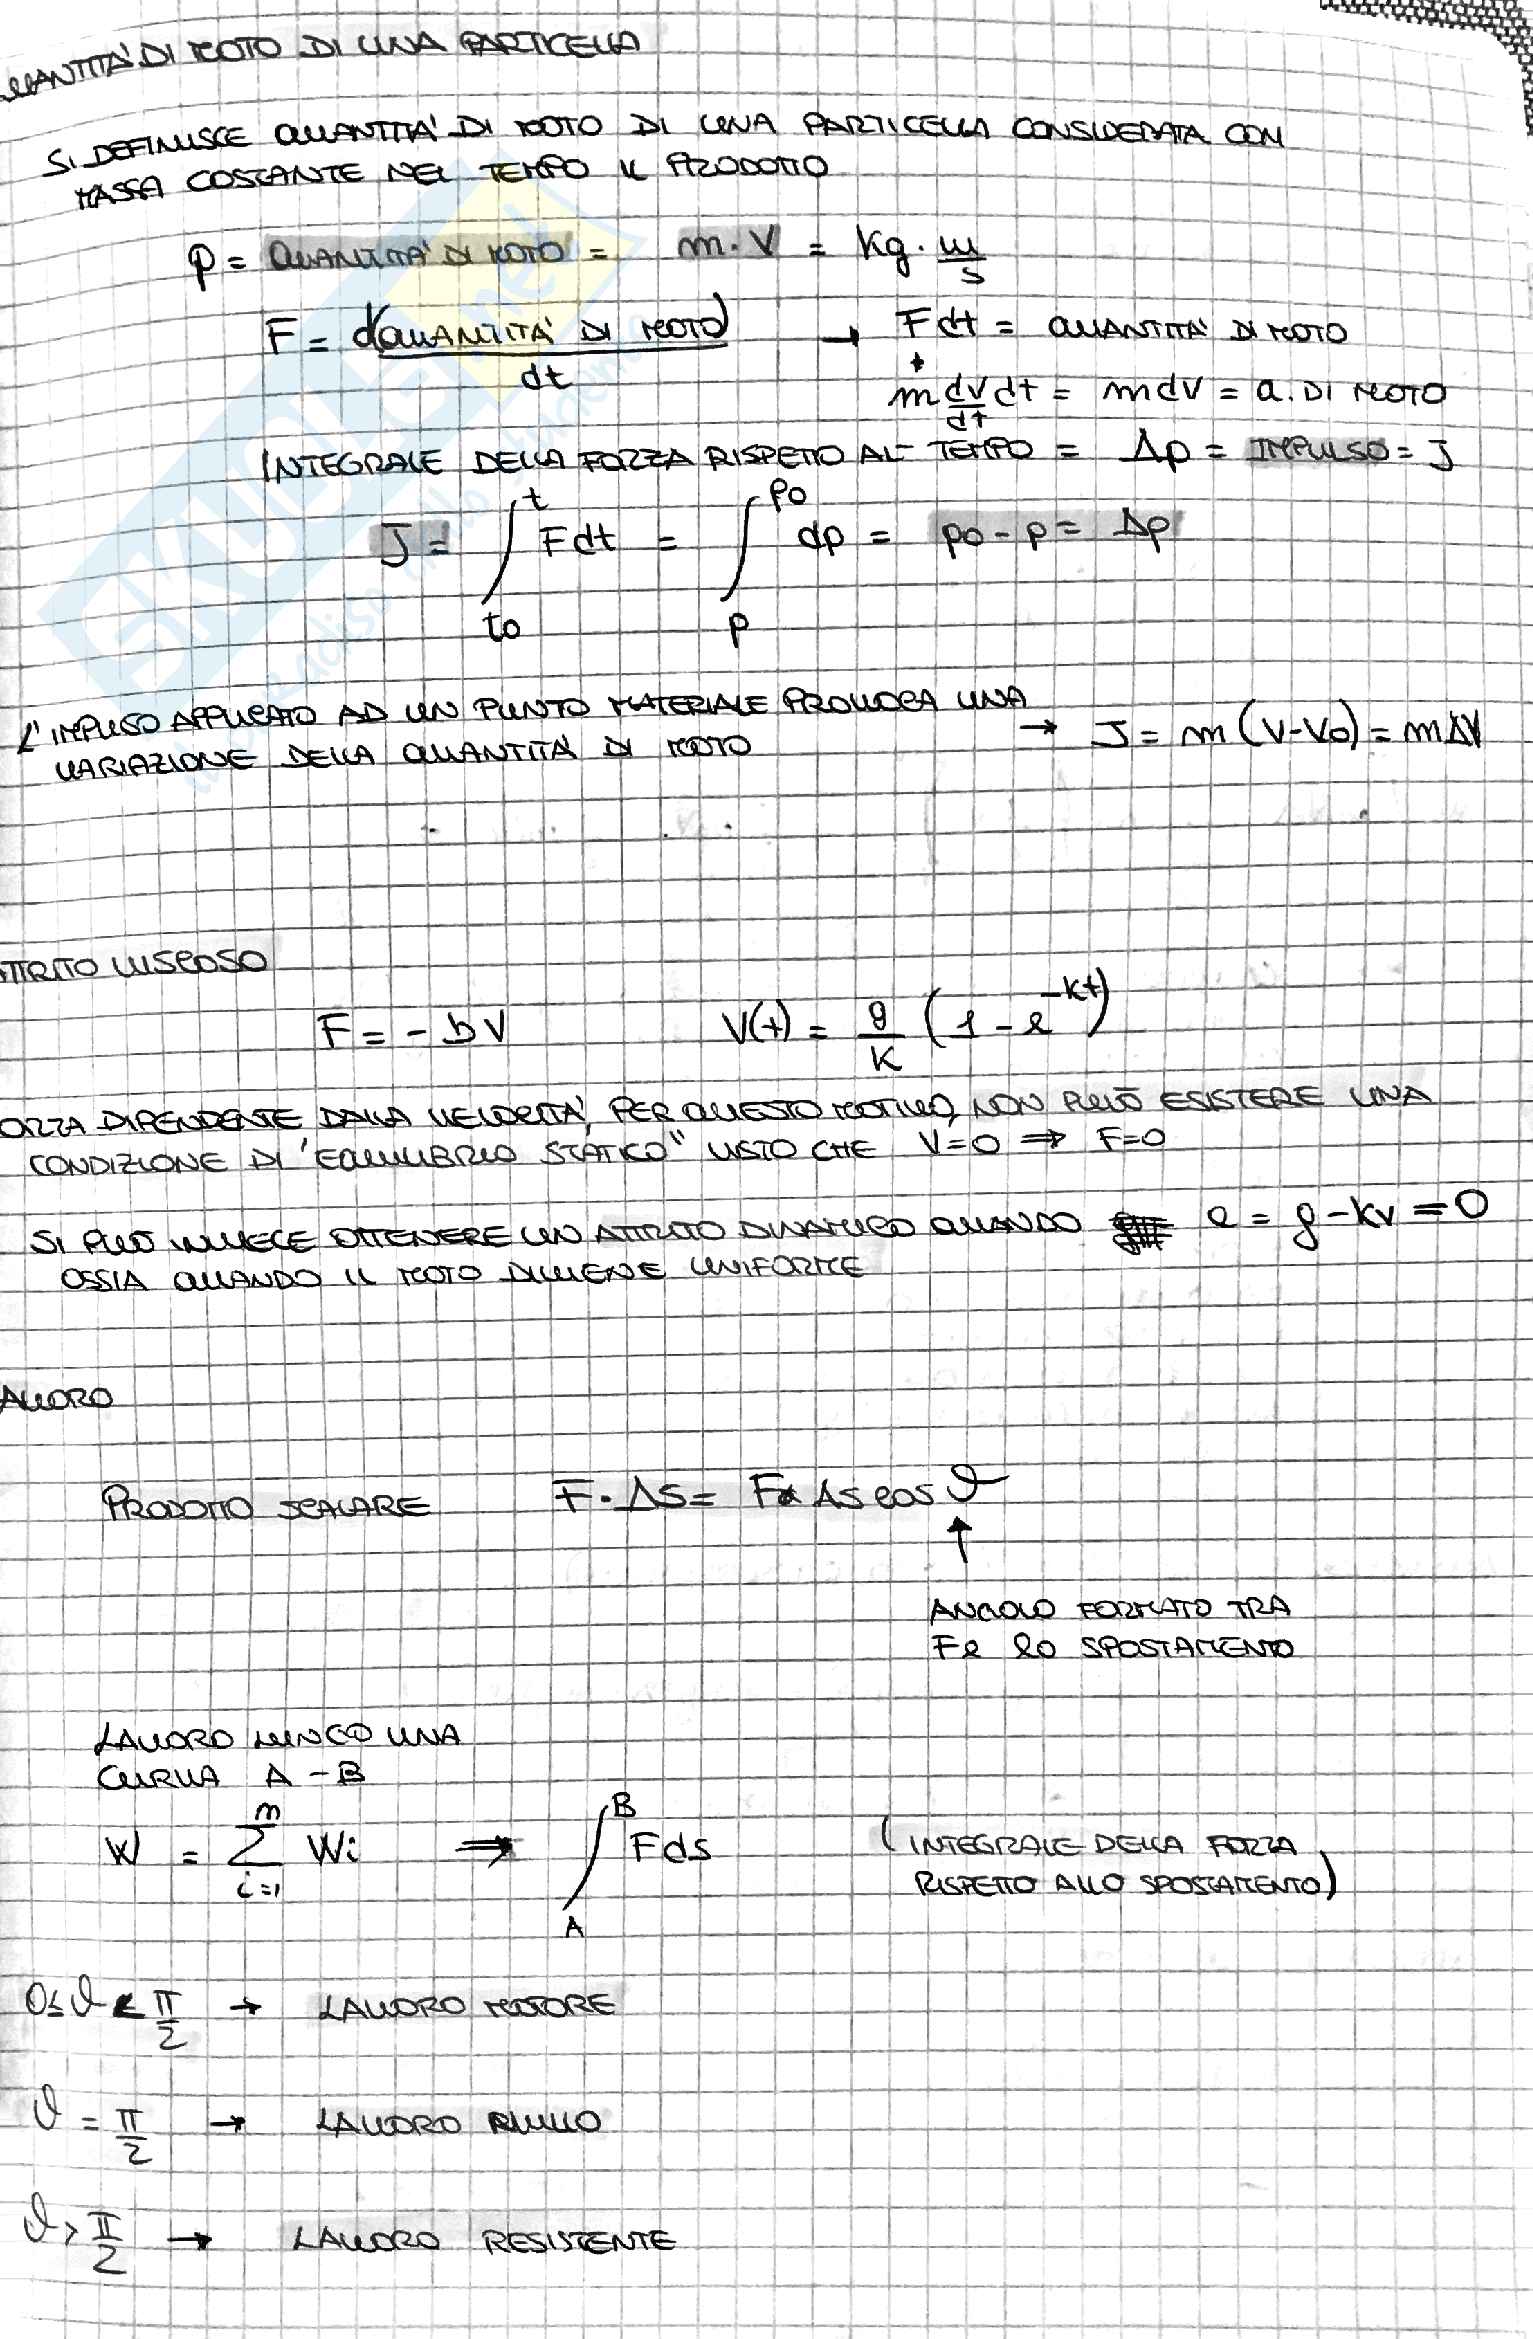 UANTITÀ DI MOTO DI UNA PARTICELLA
SI DEFINISCE QUANTITA' DI MOTO DI UNA PARTICELLA CONSIDERATA CON
MASSA COSTANTE NEL TEMPO IL PRODOTTO
p = QUANTITA' DI MOTO = m · V = Kg · m/s
F = d(QUANTITA' DI MOTO)/dt → Fdt = QUANTITA' DI MOTO
m dV/dt dt = mdV = Q. DI MOTO
INTEGRALE DELLA FORZA RISPETTO AL TEMPO = Δp = IMPULSO = J
J = ∫_{t0}^{t} Fdt = ∫_{p}^{p0} dp = p0 - p = Δp
L'IMPULSO APPLICATO AD UN PUNTO MATERIALE PROVOCA UNA
VARIAZIONE DELLA QUANTITA' DI MOTO → J = m (V-V0) = mΔV
TTRITO VISCOSO
F = - bV V(t) = g/K (1 - e^{-kt})
ORZA DIPENDENTE DALLA VELOCITA', PER QUESTO MOTIVO, NON PUÒ ESISTERE UNA
CONDIZIONE DI "EQUILIBRIO STATICO" VISTO CHE V=0 ⇒ F=0
SI PUÒ INVECE OTTENERE UN ATTRITO DINAMICO QUANDO a = g - kv = 0
OSSIA QUANDO IL MOTO DIVIENE UNIFORME
AVORO
PRODOTTO SCALARE F · Δs = F Δs cos ϑ
↑
ANGOLO FORMATO TRA
F e lo SPOSTAMENTO
LAVORO LUNGO UNA
CURVA A - B
W = Σ_{i=1}^{n} Wi ⇒ ∫_{A}^{B} Fds (INTEGRALE DELLA FORZA
RISPETTO ALLO SPOSTAMENTO)
0 ≤ ϑ < π/2 → LAVORO MOTORE
ϑ = π/2 → LAVORO NULLO
ϑ > π/2 → LAVORO RESISTENTE